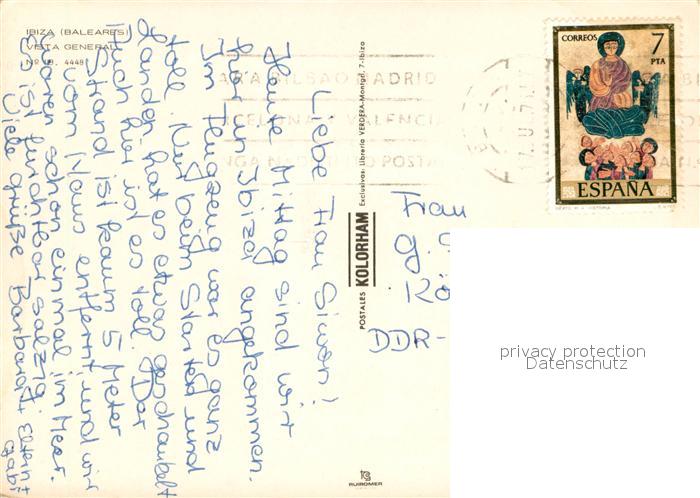 IBIZA (BALEARES)
VISTA GENERAL
Liebe Frau Simon!
Heute Mittag sind wir
hier in Ibiza angekommen.
Im Flugzeug war es ganz
toll. Nur beim Starten und
Landen hat es etwas geschaukelt
Auch hier ist es toll. Der
Strand ist kaum 5 Meter
vom Haus entfernt und wir
waren schon einmal im Meer.
Es ist furchtbar salzig.
Viele Grüße Barbara + Eltern +
Gabi
POSTALES KOLORHAM Exclusivas: Librería VERDERA-Montgrí, 7-Ibiza
RUIROMER
CORREOS 7
PTA
ESPAÑA
Frau
G.
Kö
DDR-
privacy protection
Datenschutz